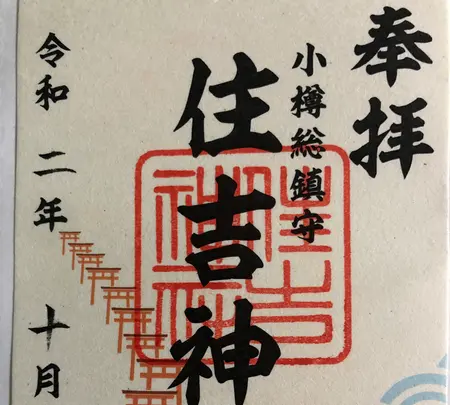 奉拝
小樽総鎮守
住吉神
住吉神社
令和二年十月